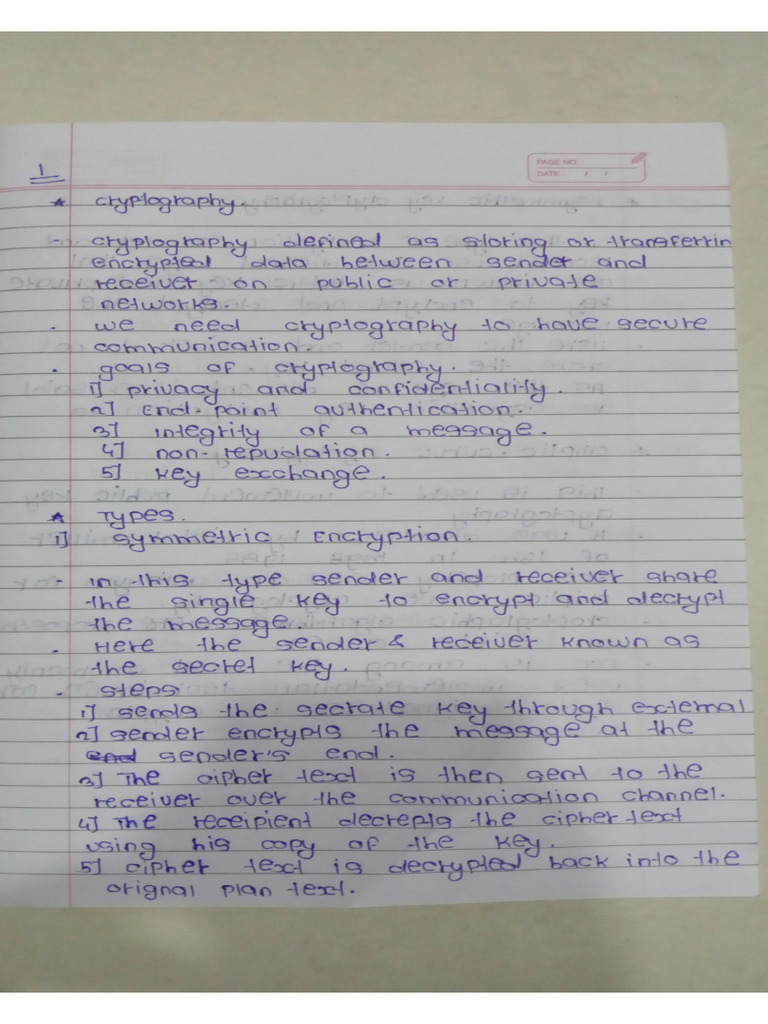 1
PAGE NO. :
DATE : / /
* cryptography.
- cryptography defined as storing or transferrin
encrypted data between sender and
receiver on public or private
networks.
. we need cryptography to have secure
communication.
. goals of cryptography.
1] privacy and confidentiality.
2] End-point authentication.
3] integrity of a message.
4] non-repudation.
5] key exchange.
* Types.
1] symmetric Encryption.
- in this type sender and receiver share
the single key to encrypt and decrypt
the message.
. Here the sender & receiver known as
the secret key.
. steps
1] sends the secrate key through external
2] sender encrypts the message at the
end sender's end.
3] The cipher text is then sent to the
receiver over the communication channel.
4] The receipient decrepts the cipher text
using his copy of the key.
5] cipher text is decrypted back into the
orignal plan text.